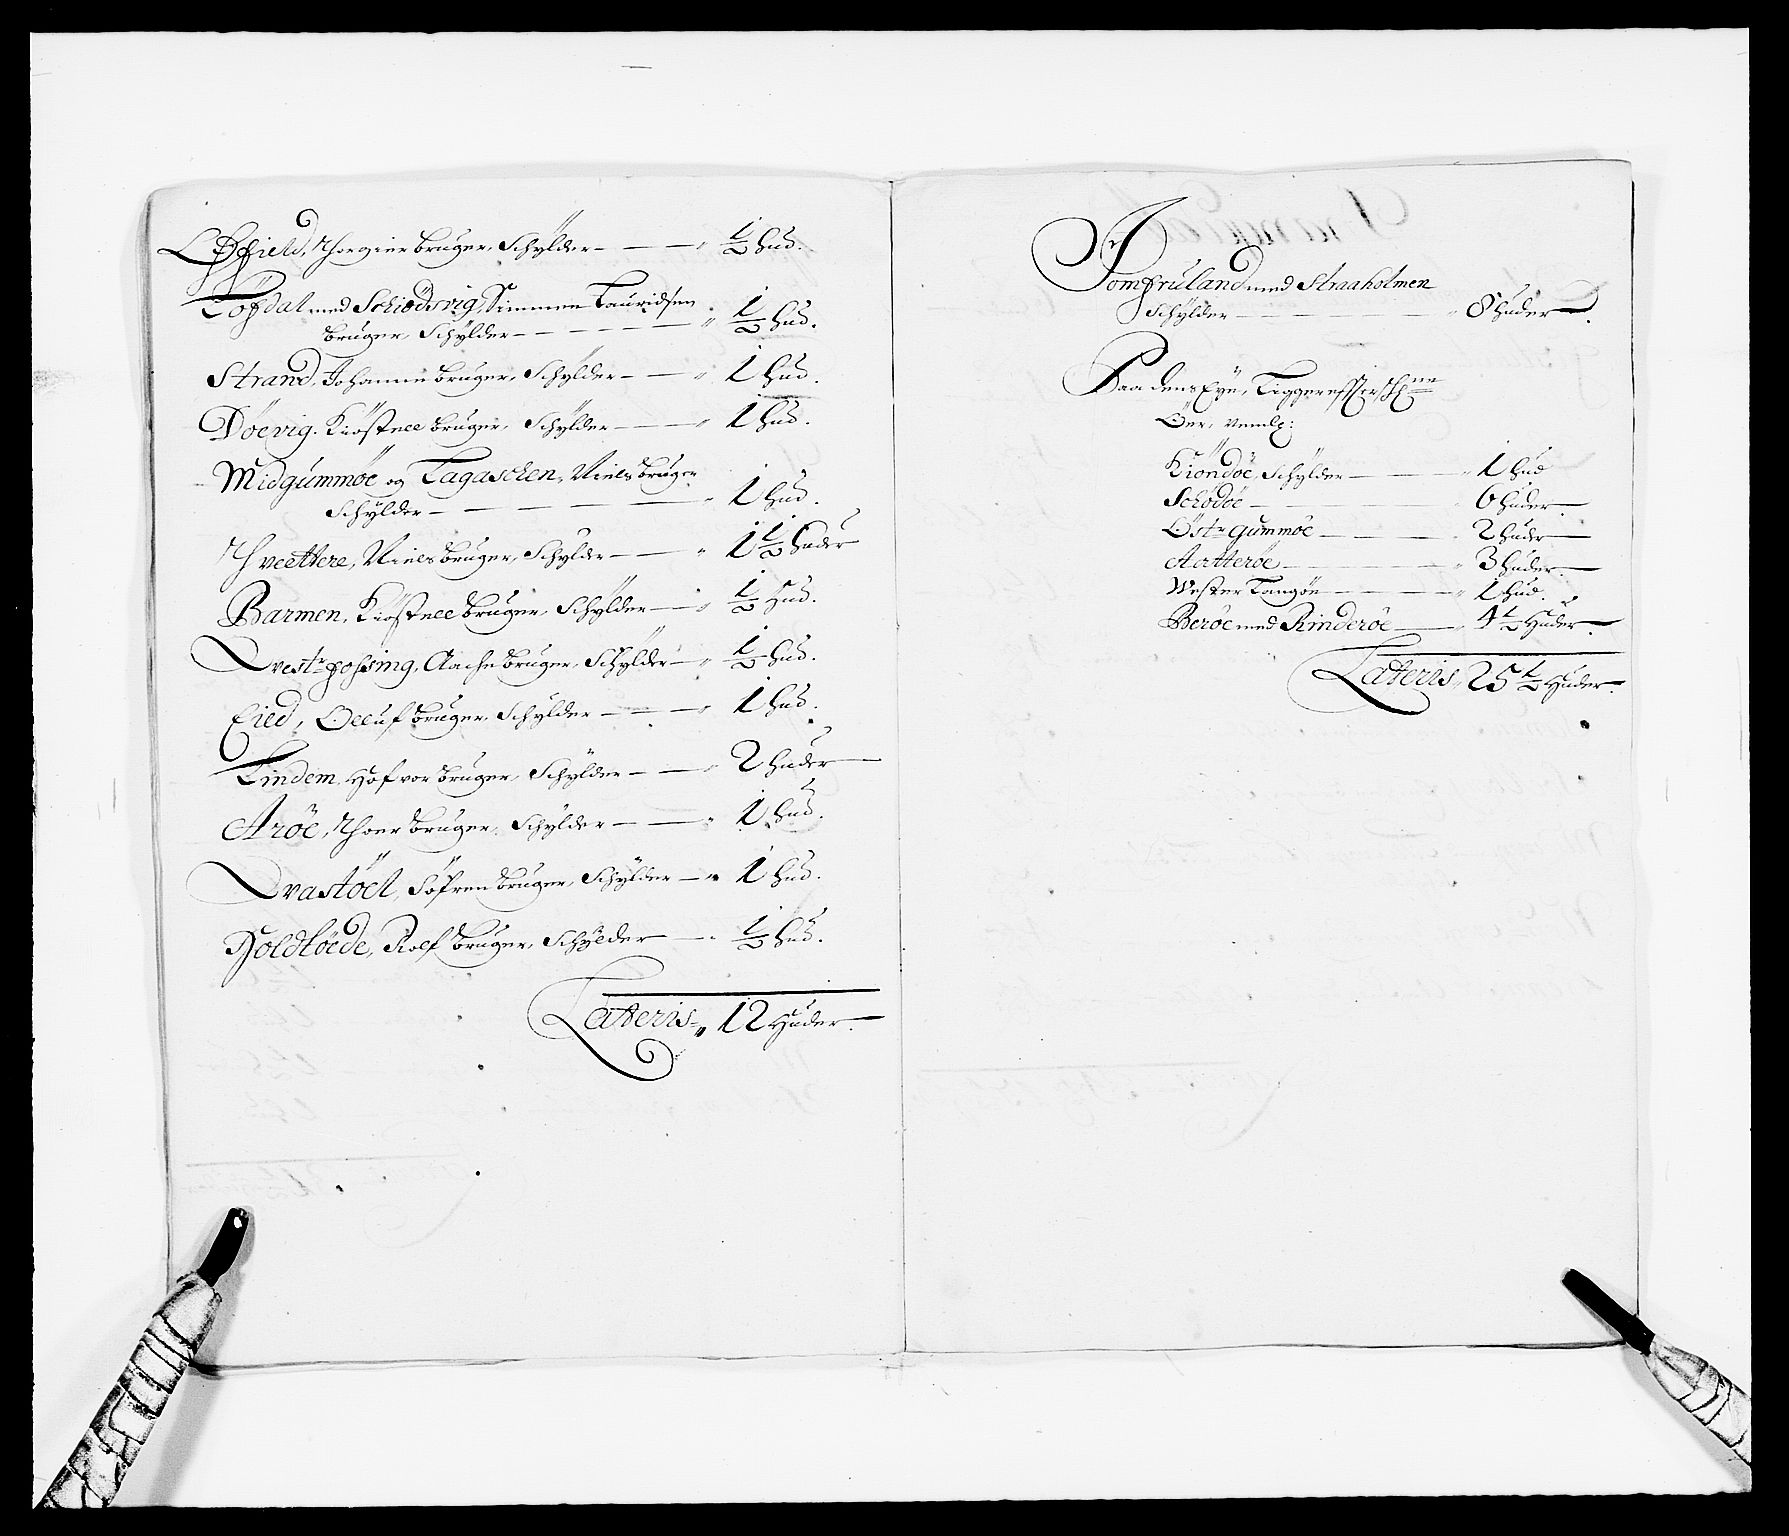 Øfield, Thorgier bruger, Schylder — — — „ ½ hud.
Töfdal med Schiödsvig, Simmen Lauridsen
bruger, Schylder — — — — — „ ½ hud.
Strand, Johanne bruger, Schylder — — „ 1 hud.
Döevig. Kiöstell bruger, Schylder — — „ 1 hud.
Midgummöe og Tagaschen, Niels bruger
Schylder — — — — — — „ 1 hud.
Thveettere, Niels bruger, Schylder — — „ 1½ huder
Barmen, Kiöstell bruger, Schylder — — „ ½ Hud.
Qvestr possing, Aache bruger, Schylder — „ ½ hud.
Eied, Olluf bruger, Schylder — — — „ 1 hud.
Lindem, Hafvor bruger, Schylder — — „ 2 huder
Aröe, Thoer bruger, Schylder — — — „ 1 hud.
Qvastöel, Söfren bruger, Schylder — „ 1 hud.
Holdtöede, Rolf bruger, Schylder — „ ½ hud.
Latteris „ 12 Huder.
Jomfruland med Straaholmen
Schylder — — — — — — „ 8 huder.
Paa dens Eye, Ligger
Öer, Nemlg:
Kiöndöe, Schylder — — „ 1 hud
Schödöe — — — — — „ 6 huder.
Östr Gummöe — — — „ 2 huder
Aatteröe — — — — „ 3 huder.
Wester Langöe — — — „ 1 hud.
Beröe med Rinderöe — — „ 4½ Huder.
Latteris „ 25½ Huder.